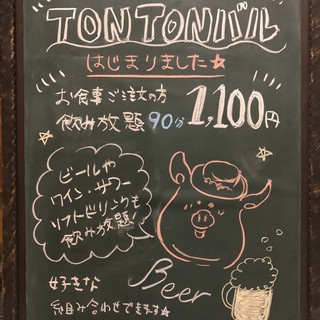 TONTONバル
はじまりました☆
お食事ご注文の方
飲み放題 90分 1,100円
ビールや
ワイン・サワー
ソフトドリンクも
飲み放題!
Beer
好きな
組み合わせできます☆